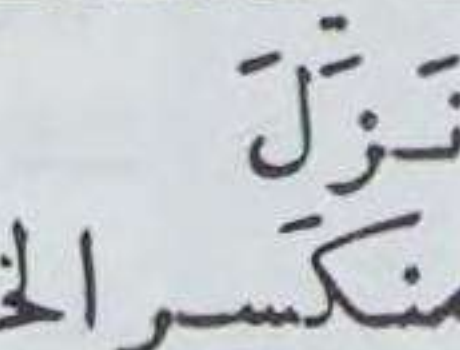 نَزَلَ
منكَسر الخ